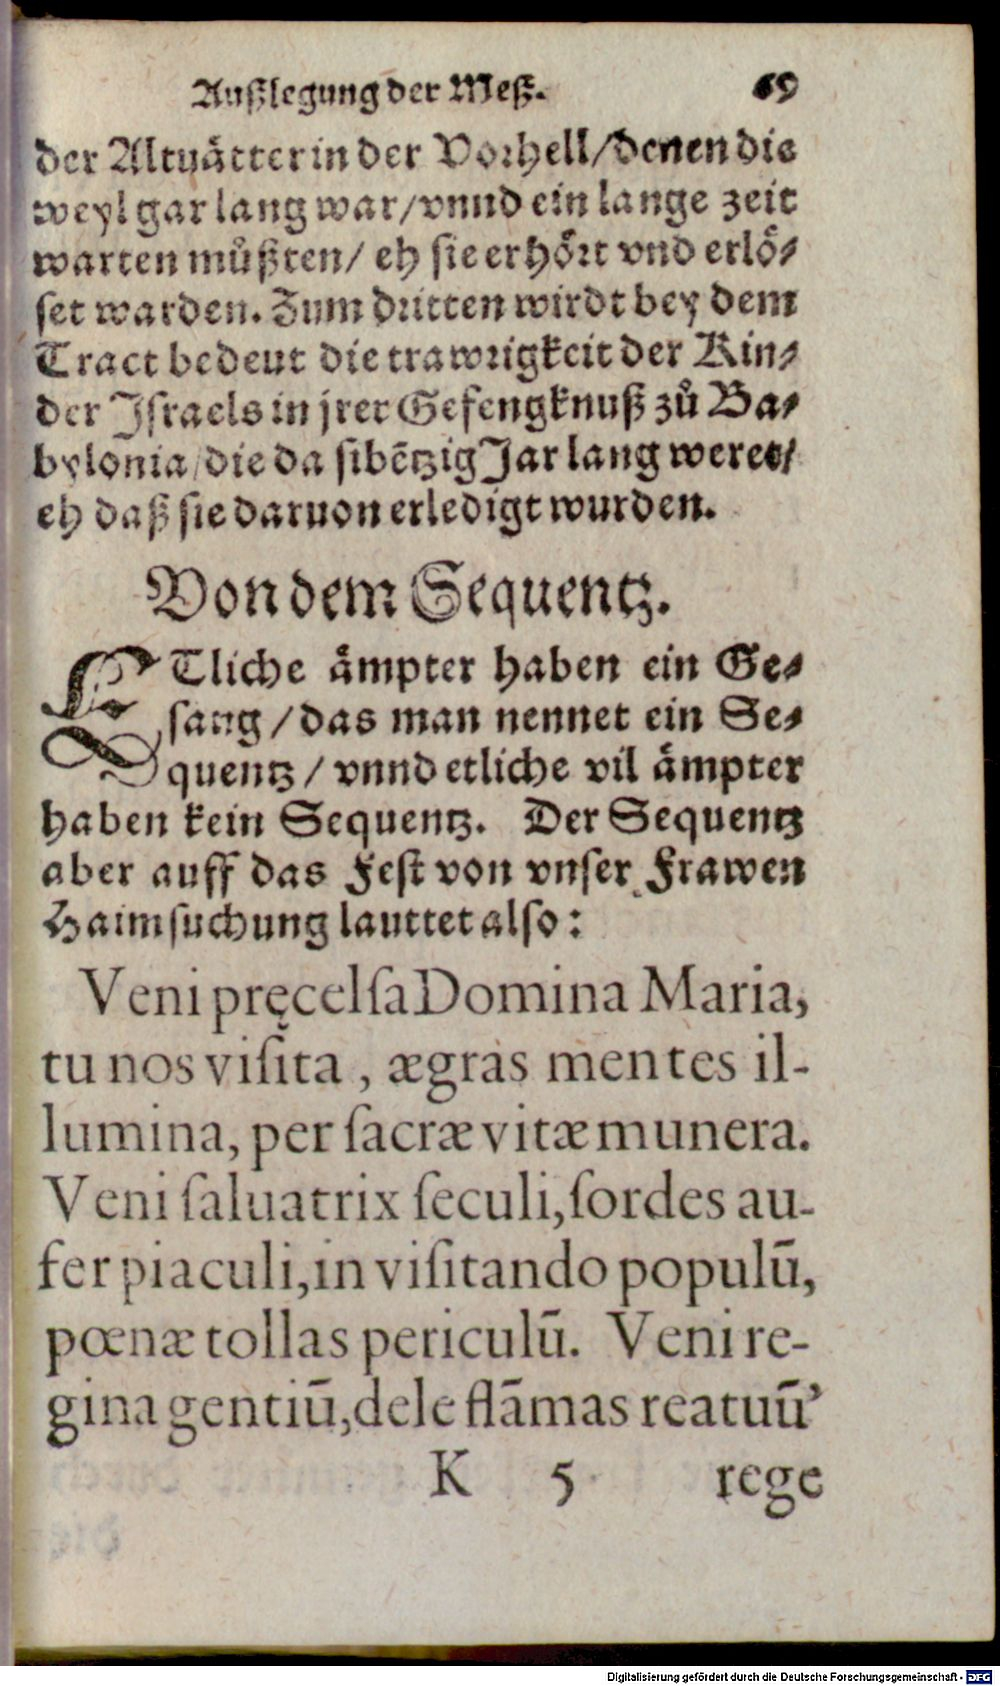 Außlegung der Meß. 69
der Altuätter in der Vorhell/denen die
weyl gar lang war/vnnd ein lange zeit
warten müßten/ eh sie erhört vnd erlö⸗
set warden. Zum dritten wirdt bey dem
Tract bedeut die trawrigkeit der Kin⸗
der Jsraels in jrer Gefengknuß zů Ba⸗
bylonia/die da sibētzig Jar lang weret/
eh daß sie daruon erledigt wurden.
Von dem Sequentz.
ETliche ämpter haben ein Ge⸗
sang/das man nennet ein Se⸗
quentz/vnnd etliche vil ämpter
haben kein Sequentz. Der Sequentz
aber auff das Fest von vnser Frawen
Haimsuchung lauttet also:
Veni pręcelſa Domina Maria,
tu nos viſita, ægras mentes il-
lumina, per ſacræ vitæ munera.
Veni ſaluatrix ſeculi, ſordes au-
fer piaculi, in viſitando populū,
pœnæ tollas periculū. Veni re-
gina gentiū, dele flāmas reatuū,
K 5 rege
Digitalisierung gefördert durch die Deutsche Forschungsgemeinschaft - DFG